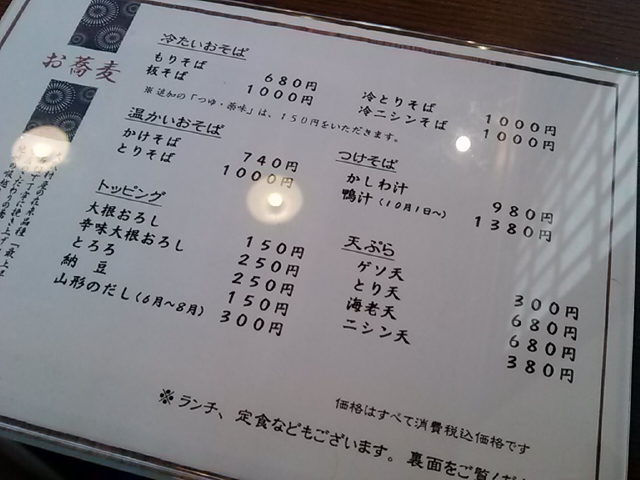 お蕎麦
冷たいおそば
もりそば 680円
板そば 1000円
冷とりそば 1000円
冷ニシンそば 1000円
※追加の「つゆ・薬味」は、150円をいただきます。
温かいおそば
かけそば 740円
とりそば 1000円
つけそば
かしわ汁 980円
鴨汁(10月1日～) 1380円
トッピング
大根おろし 150円
辛味大根おろし 250円
とろろ 250円
納豆 150円
山形のだし(6月～8月) 300円
天ぷら
ゲソ天 300円
とり天 680円
海老天 680円
ニシン天 380円
価格はすべて消費税込価格です
※ランチ、定食などもございます。裏面をご覧くだ